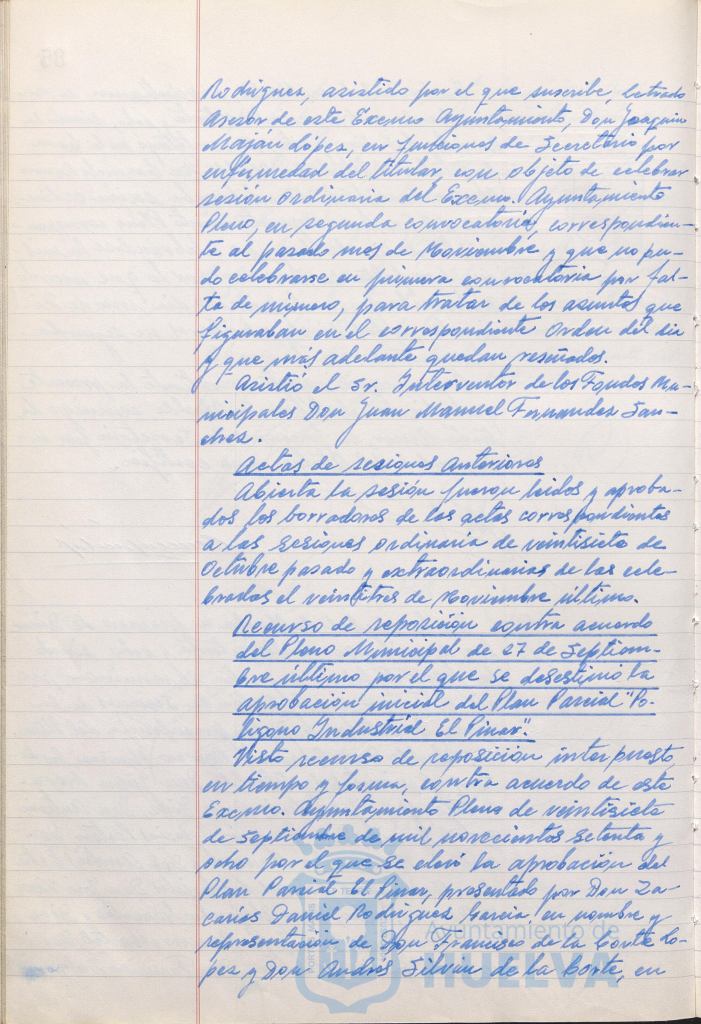 Rodríguez, asistido por el que suscribe, Letrado
Asesor de este Excmo. Ayuntamiento, Don Joaquin
Maján López, en funciones de Secretario por
enfermedad del titular, con objeto de celebrar
sesión ordinaria del Excmo. Ayuntamiento
Pleno, en segunda convocatoria, correspondien-
te al pasado mes de Noviembre y que no pu-
do celebrarse en primera convocatoria por fal-
ta de número, para tratar de los asuntos que
figuraban en el correspondiente Orden del dia
y que más adelante quedan reseñados.
Asistió el Sr. Interventor de los Fondos Mu-
nicipales Don Juan Manuel Fernandez San-
chez.
Actas de sesiones anteriores
Abierta la sesión fueron leidos y aproba-
dos los borradores de las actas correspondientes
a las sesiones ordinaria de veintisiete de
Octubre pasado y extraordinarias de las cele-
bradas el veintitres de Noviembre último.
Recurso de reposición contra acuerdo
del Pleno Municipal de 27 de Septiem-
bre último por el que se desestimó la
aprobación inicial del Plan Parcial "Po-
lígono Industrial El Pinar".
Visto recurso de reposición interpuesto,
en tiempo y forma, contra acuerdo de este
Excmo. Ayuntamiento Pleno de veintisiete
de Septiembre de mil novecientos setenta y
ocho por el que se la aprobación del
Plan Parcial El Pinar, presentado por Don Za-
carías Daniel Rodriguez Garcia, en nombre y
representación de Don Francisco de la Corte Lo-
pez y Don Andrés Silván de la Corte, en
Ayuntamiento de
HUELVA